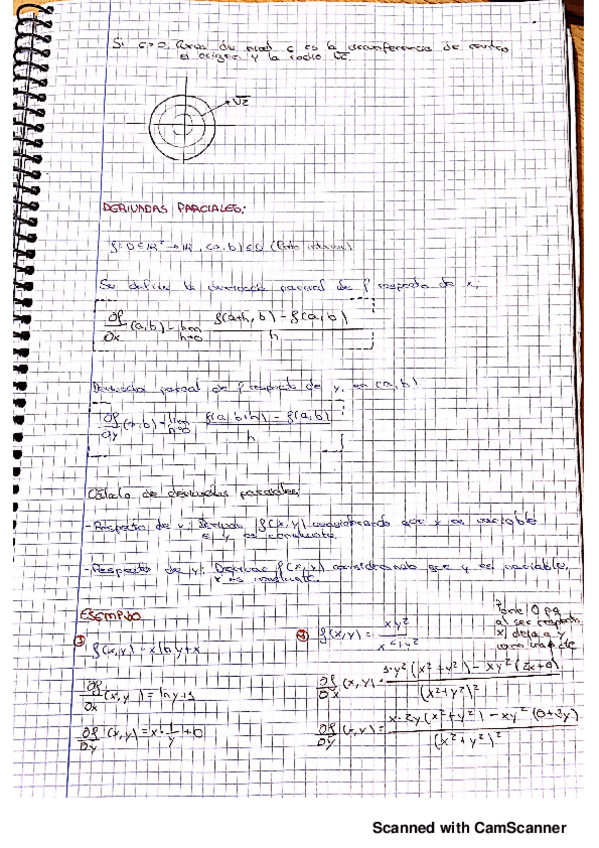 Si c>0. Curvas de nivel c es la circunferencia de centro
el origen y la radio √c.
√c
DERIVADAS PARCIALES:
f: D ⊆ ℝ² → ℝ, (a,b) ∈ D (Punto interior)
Se define la derivada parcial de f respecto de x:
∂f/∂x (a,b) = lim h→0 f(a+h, b) - f(a,b) / h
Derivada parcial de f respecto de y, en (a,b)
∂f/∂y (a,b) = lim h→0 f(a, b+h) - f(a,b) / h
Cálculo de derivadas parciales:
- Respecto de x: Derivar f(x,y) considerando que x es variable
e y es constante.
- Respecto de y: Derivar f(x,y) considerando que y es variable,
x es constante.
EJEMPLO
f(x,y) = x ln y + x
∂f/∂x (x,y) = ln y + 1
∂f/∂y (x,y) = x · 1/y + 0
f(x,y) = xy² / x²+y²
Pone 0 pq
al ser respecto
x, deja a y
como una cte
∂f/∂x (x,y) = 1·y² (x²+y²) - xy² (2x+0) / (x²+y²)²
∂f/∂y (x,y) = x·2y (x²+y²) - xy² (0+2y) / (x²+y²)²
Scanned with CamScanner